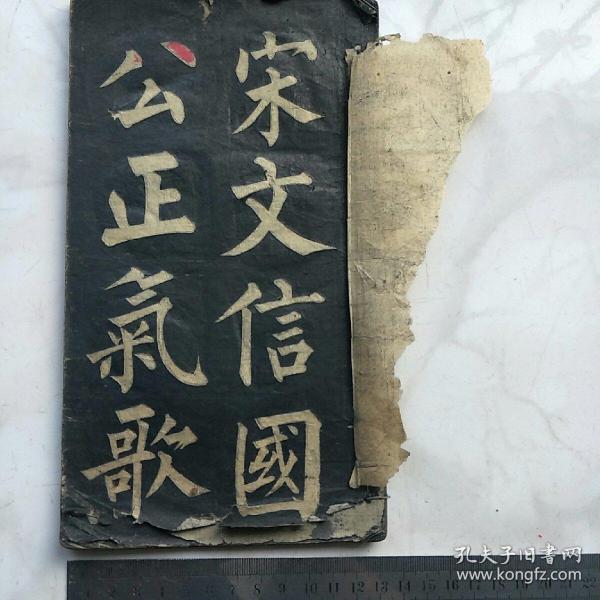 宋文信國
公正氣歌
孔夫子旧書网
www.kongfz.com